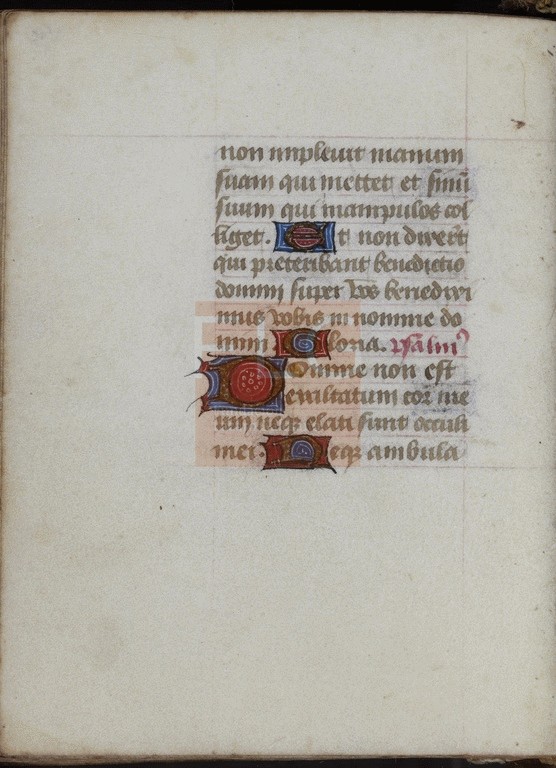 non impleuit manum
suam qui mettet et sinū
suum qui manipulos col
liget. Et non dixert̄
qui preteribant benedictio
domini super vos benedixi
mus vobis in nomine do
mini. Gloria. psalm⁹
Domine non est
exultatum cor me
um neqꝫ elati sunt occuli
mei. Neqꝫ ambula